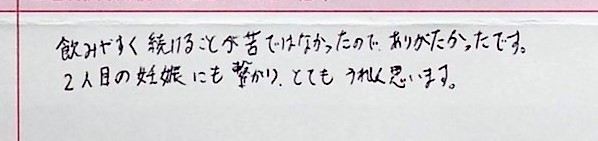 飲みやすく続けることが苦ではなかったので、ありがたかったです。
2人目の妊娠にも繋がり、とてもうれしく思います。